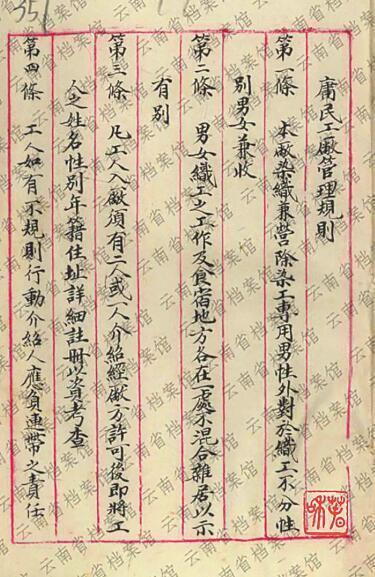 庸民工廠管理規則
第一條　本廠染織兼營除染工專用男性外對於織工不分性
別男女兼收
第二條　男女織工之工作及食宿地方各在一處不混合雜居以示
有别
第三條　凡工人入廠須有二人或一人介紹經廠方許可後即將工
人之姓名性別年籍住址詳細註冊以資考查
第四條　工人如有不規則行動介紹人應負連帶之責任
351
云南省档案馆